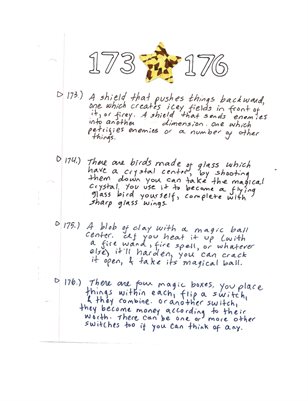 173 176
▷ 173.) A shield that pushes things backward,
one which creates icey fields in front of
it, or firey. A shield that sends enemies
into another dimension. one which
petrifies enemies or a number of other
things.
▷ 174.) There are birds made of glass which
have a crystal centre, by shooting
them down you can take the magical
crystal. You use it to become a flying
glass bird yourself, complete with
sharp glass wings.
▷ 175.) A blob of clay with a magic ball
center. If you heat it up (with
a fire wand, fire spell, or whatever
else, it'll harden, you can crack
it open, & take its magical ball.
▷ 176.) There are four magic boxes, you place
things within each, flip a switch,
& they combine. Or another switch,
they become money according to their
worth. There can be one or more other
switches too if you can think of any.